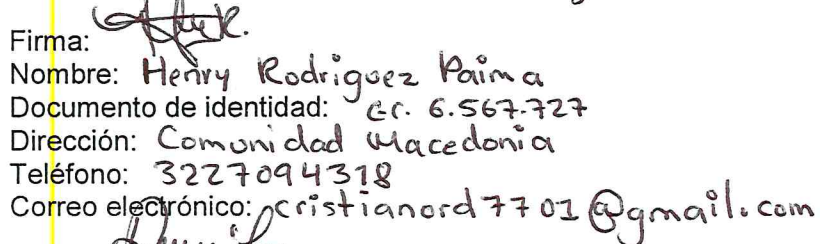 Firma:
Nombre: Henry Rodriguez Paima
Documento de identidad: cc. 6.567.727
Dirección: Comunidad Macedonia
Teléfono: 3227094318
Correo electrónico: cristianord7701@gmail.com